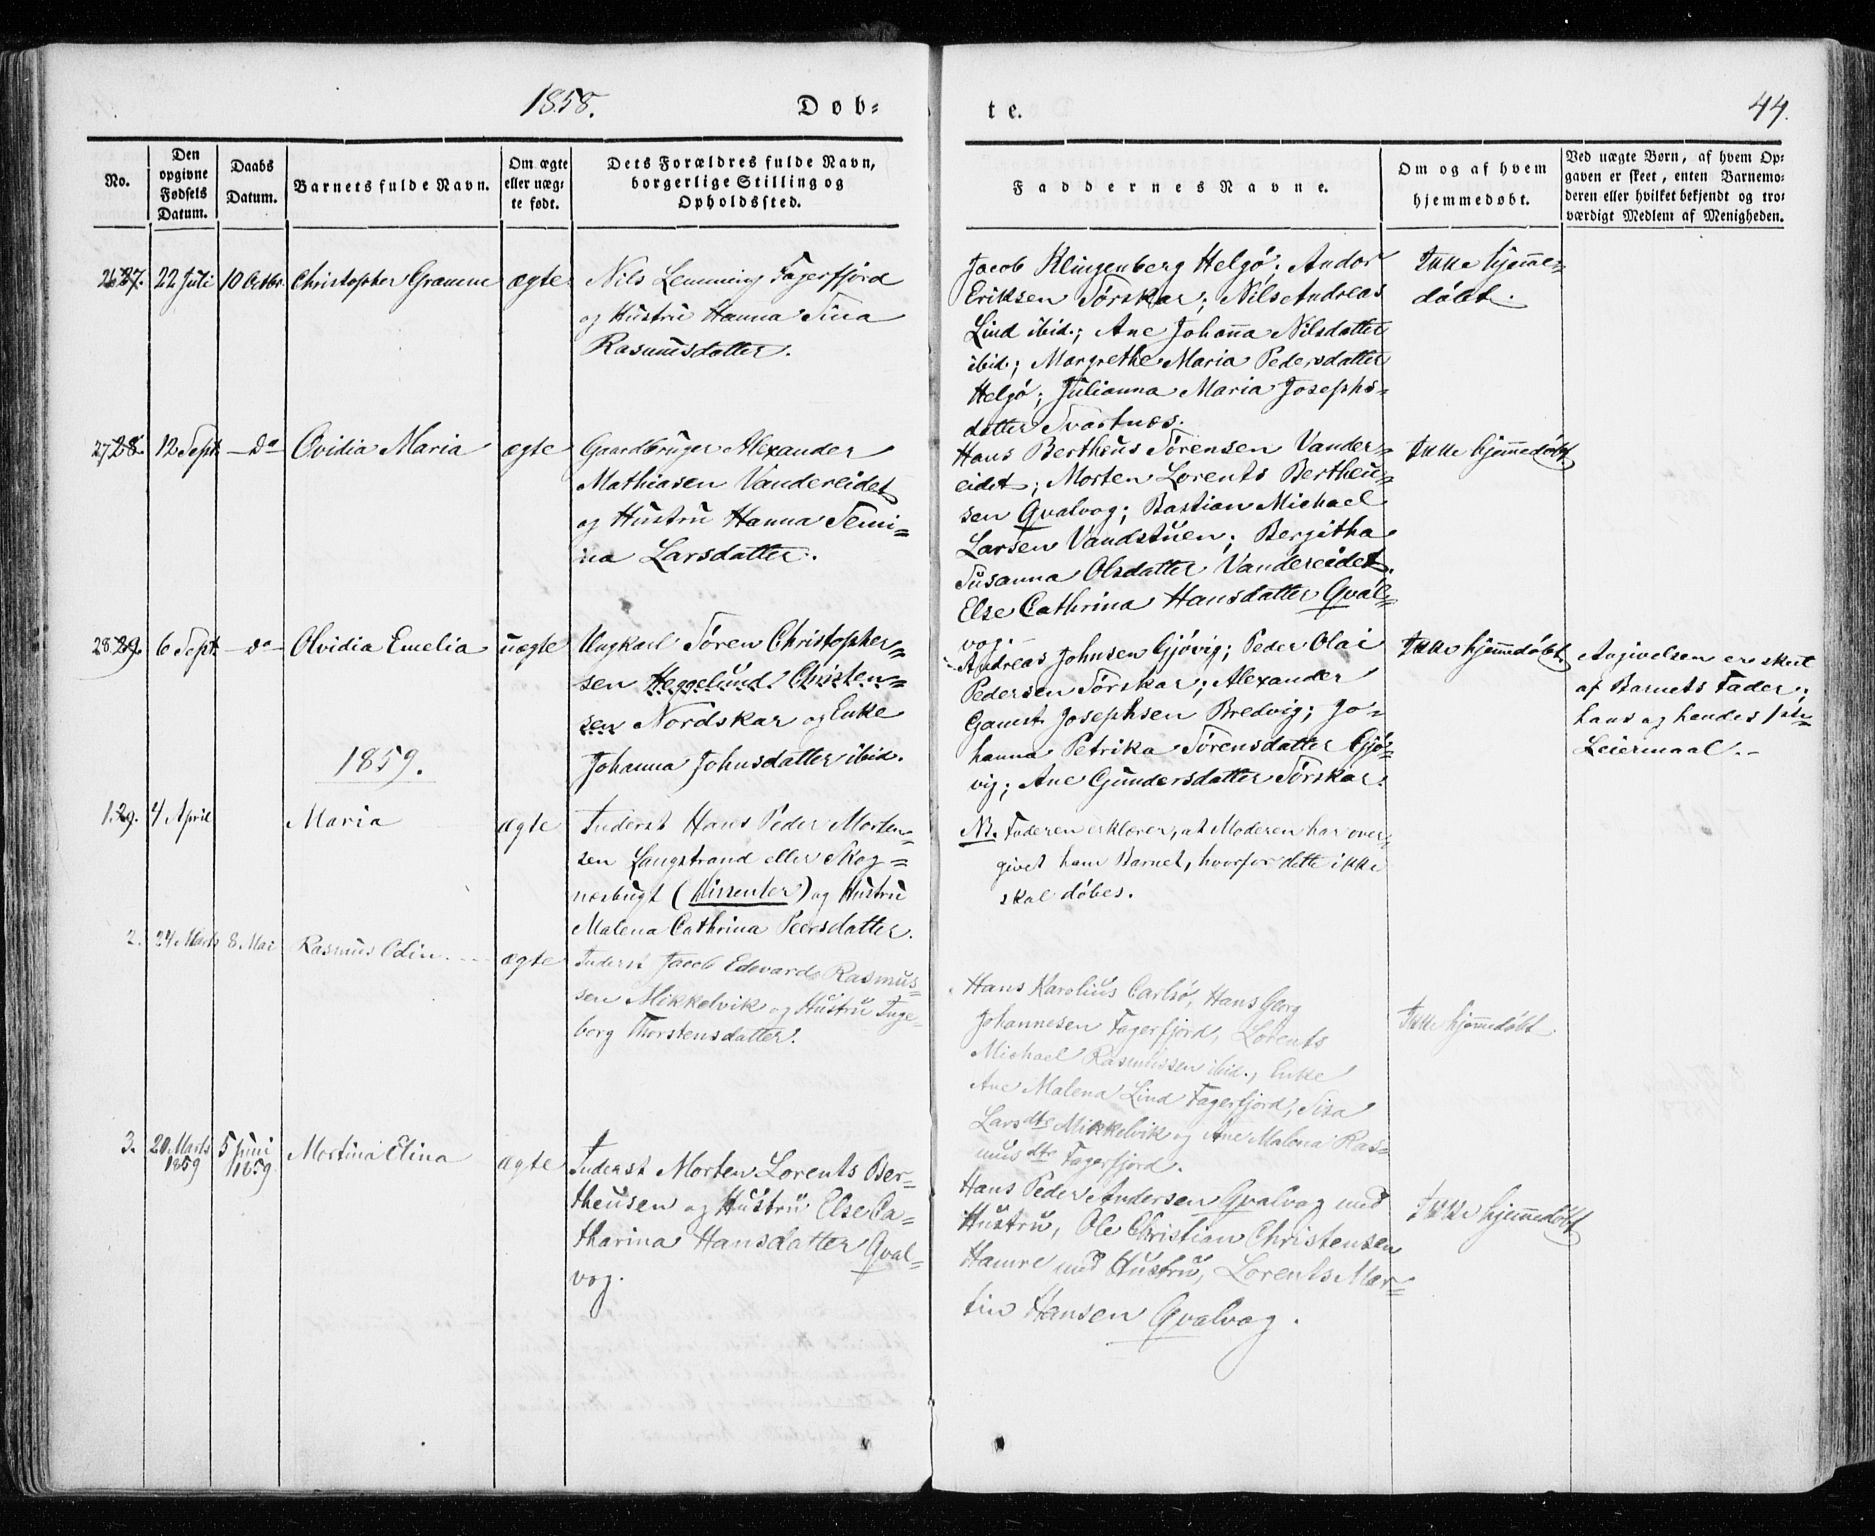 1858.
Døb-
te.
44.
No.
Den opgivne Fødsels Datum.
Daabs Datum.
Barnets fulde Navn.
Om ægte eller uæg-te født.
Dets Forældres fulde Navn, borgerlige Stilling og Opholdssted.
Faddernes Navne.
Om og af hvem hjemmedøbt.
Ved uægte Børn, af hvem Op-
gaven er skeet, enten Barnemo-
deren eller hvilket bekjendt og tro-
værdigt Medlem af Menigheden.
26 27. 22 Juli 10 Octbr. Christopher Gramm ægte
Nils Lemming Fagerfjord
og Hustru Hanna Sina
Rasmusdatter.
Jacob Klingenberg Helgø; Andor
Eriksen Sørskar; Nils Andreas
Lind ibid.; Ane Johanna Nilsdatter
ibid; Margrethe Maria Pedersdatter
Helgø; Julianna Maria Josephs-
datter Svartnæs.
Ikke hjemme-
døbt.
27 28. 12 Sept. - do - Ovidia Maria ægte
Gaardbruger Alexander
Mathiasen Vandereidet
og Hustru Hanna Semi-
na Larsdatter.
Hans Bertheus Sørensen Vander-
eidet; Morten Lorents Bertheu-
sen Qvalvog; Bastian Michael
Larsen Vandstuen; Bergitha
Susanna Olsdatter Vandereidet.
Else Cathrina Hansdatter Qval-
vog.
Ikke hjemmedøbt.
28 29. 6 Sept. - do - Olvidia Emelia uægte
Ungkarl Søren Christopher-
sen Heggelund Christen-
sen Nordskar og Enke
Johanna Johnsdatter ibid.
Andreas Johnsen Gjøvig; Peder Olai
Pedersen Sørskar; Alexander
Gamst Josephsen Bredvig; Jo-
hanna Petrika Sørensdatter Gjø-
vig; Ane Gundersdatter Sørskar.
Ikke hjemmedøbt.
Angivelsen er skeet
af Barnets Fader;
hans og hendes 1ste
Leiermaal.-
1859.
1. 29. 4 April Maria ægte
Inderst Hans Peder Morten-
sen Langstrand eller Skog-
næsbugt (Dissenter) og Hustru
Malena Cathrina Peersdatter.
NB. Faderen erklærer, at Moderen har over-
givet ham Barnet, hvorfor dette ikke
skal døbes.
2. 24 Marts 8. Mai Rasmus Odin ægte
Inderst Jacob Edevard Rasmus-
sen Mikkelvik og Hustru Inge-
borg Thorstensdatter.
Hans Karolius Carlsø, Hans Georg
Johannesen Fagerfjord, Lorents
Michael Rasmussen ibid., Enke
Ane Malena Lind Fagerfjord, Sisa
Larsdtr Mikkelvik og Ane Malena Ras-
musdtr Fagerfjord.
Ikke hjemmedøbt.
3. 20 Marts 1859 5 Juni 1859 Mortina Elina ægte
Inderst Morten Lorents Ber-
theusen og Hustru Else Ca-
tharina Hansdatter Qval-
vog.
Hans Peder Andersen Qvalvog med
Hustru, Ole Christian Christensen
Hamre med Hustru, Lorents Mar-
tin Hansen Qvalvog.
Ikke hjemmedøbt